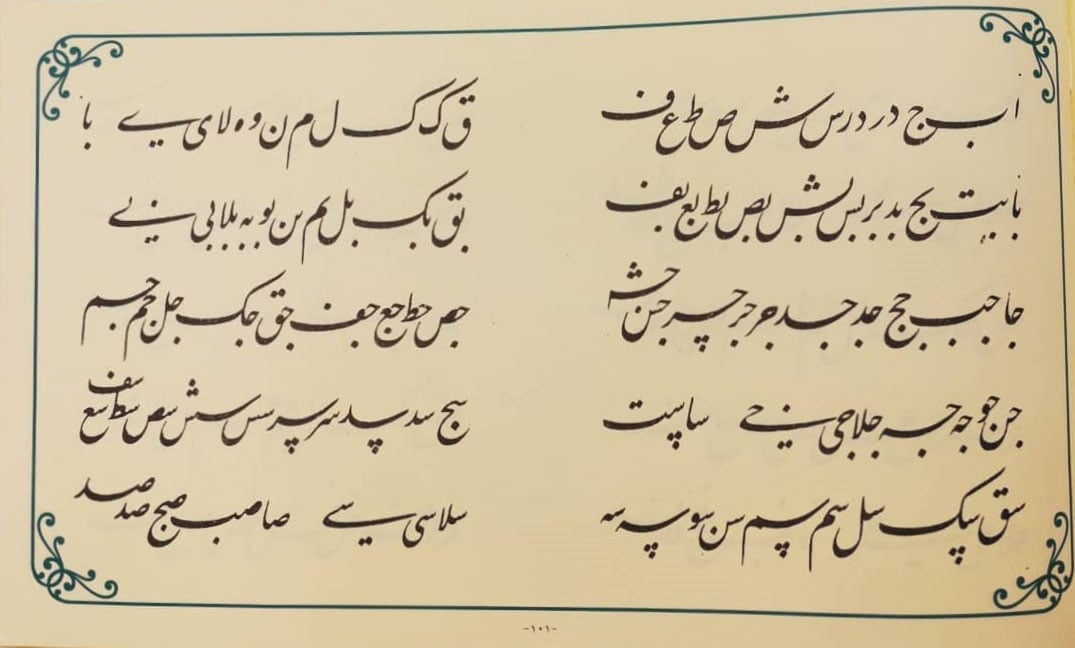 ا ب ج د ر د ر س ش ص ط ع ف
ق ک ک ل م ن و ه لا ی ے با
با بت بج بد بر بس بش بص بط بع بف
بق بک بل بم بن بو به بلا بی بے
جا جب جج جد جد جر جر جس جش
جص جط جع جف جق جک جل جم جم
جن جو جه جه جلا جی جے سا ست
سج سد سد سر سر سس سش سص سط سع سف
سق سک سل سم سم سن سو سه سه
سلا سی سے صا صب صج صد صد
-۱۰۱-